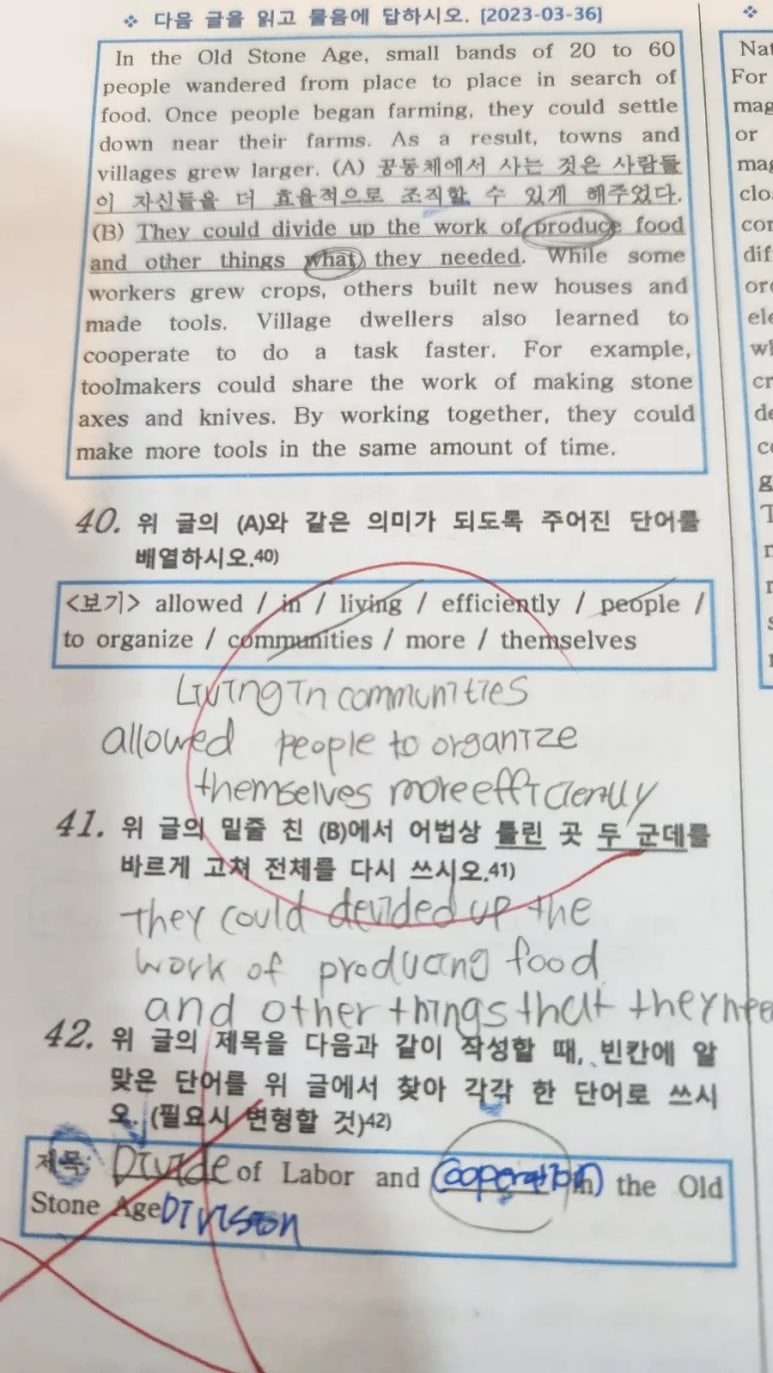 ❖ 다음 글을 읽고 물음에 답하시오. [2023-03-36]
In the Old Stone Age, small bands of 20 to 60
people wandered from place to place in search of
food. Once people began farming, they could settle
down near their farms. As a result, towns and
villages grew larger. (A) 공동체에서 사는 것은 사람들
이 자신들을 더 효율적으로 조직할 수 있게 해주었다.
(B) They could divide up the work of produce food
and other things what they needed. While some
workers grew crops, others built new houses and
made tools. Village dwellers also learned to
cooperate to do a task faster. For example,
toolmakers could share the work of making stone
axes and knives. By working together, they could
make more tools in the same amount of time.
40. 위 글의 (A)와 같은 의미가 되도록 주어진 단어를
배열하시오.40)
<보기> allowed / in / living / efficiently / people /
to organize / communities / more / themselves
Living in communities
allowed people to organize
themselves more efficiently
41. 위 글의 밑줄 친 (B)에서 어법상 틀린 곳 두 군데를
바르게 고쳐 전체를 다시 쓰시오.41)
they could devided up the
work of producing food
and other things that they nee
42. 위 글의 제목을 다음과 같이 작성할 때, 빈칸에 알
맞은 단어를 위 글에서 찾아 각각 한 단어로 쓰시
오. (필요시 변형할 것)42)
제목: Divide of Labor and Cooperation in the Old
Stone Age Divison
❖
Nat
For
mag
or
mag
clo
cor
dif
ore
ele
wl
cr
de
g